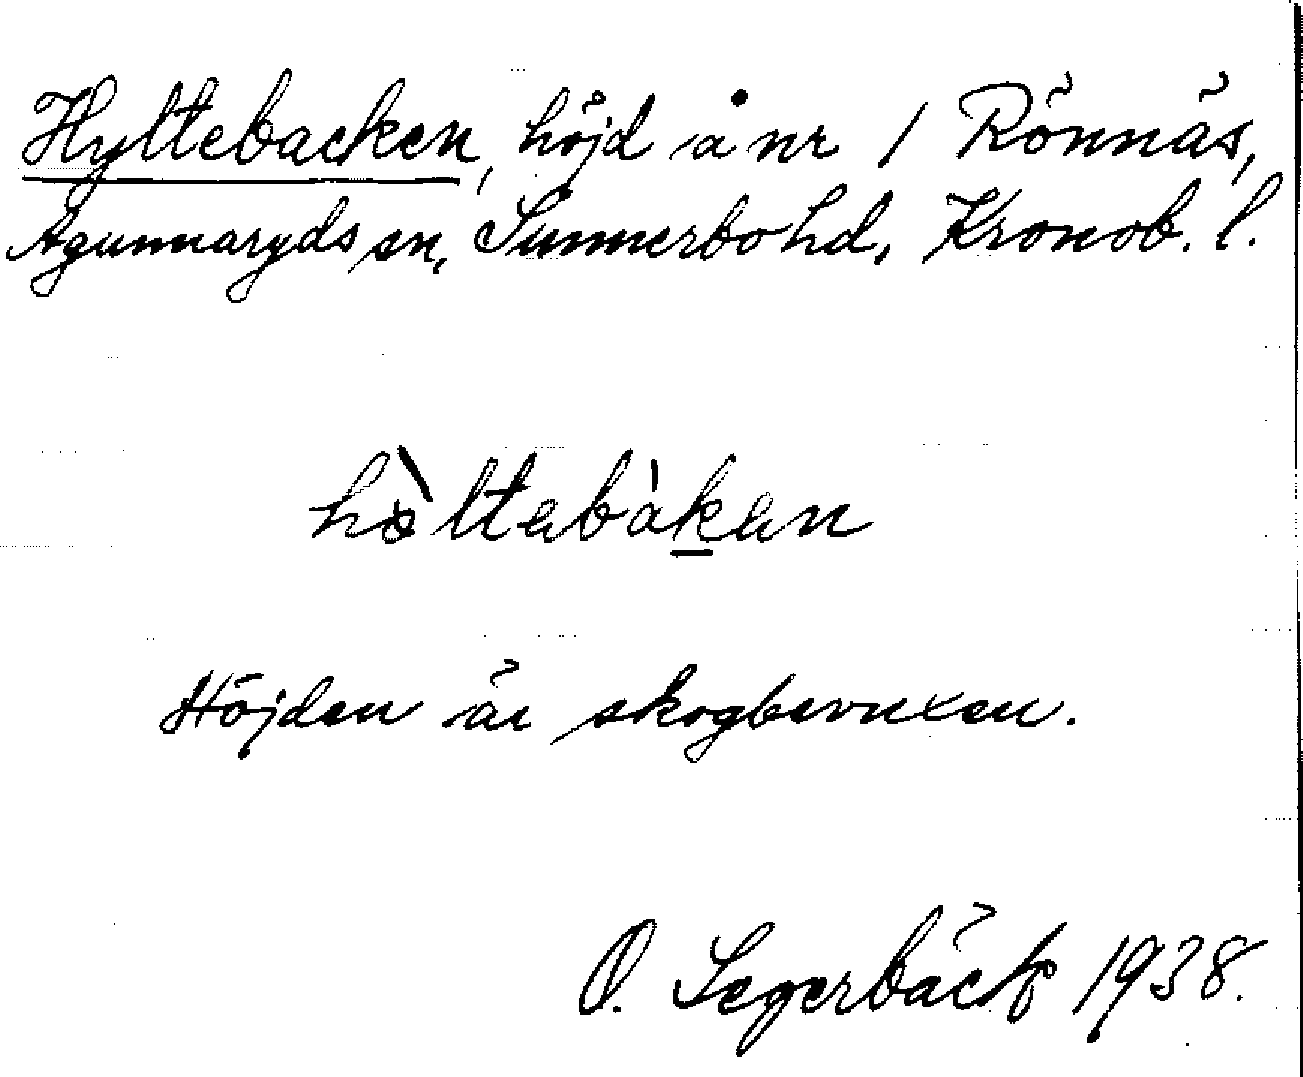 Hyltebacken, höjd å nr 1 Rönnäs,
Agunnaryds sn, Sunnerbo hd, Kronob. l.
hø̀ltabàk̲an
Höjden är skogbevuxen.
O. Segerbäck 1938.